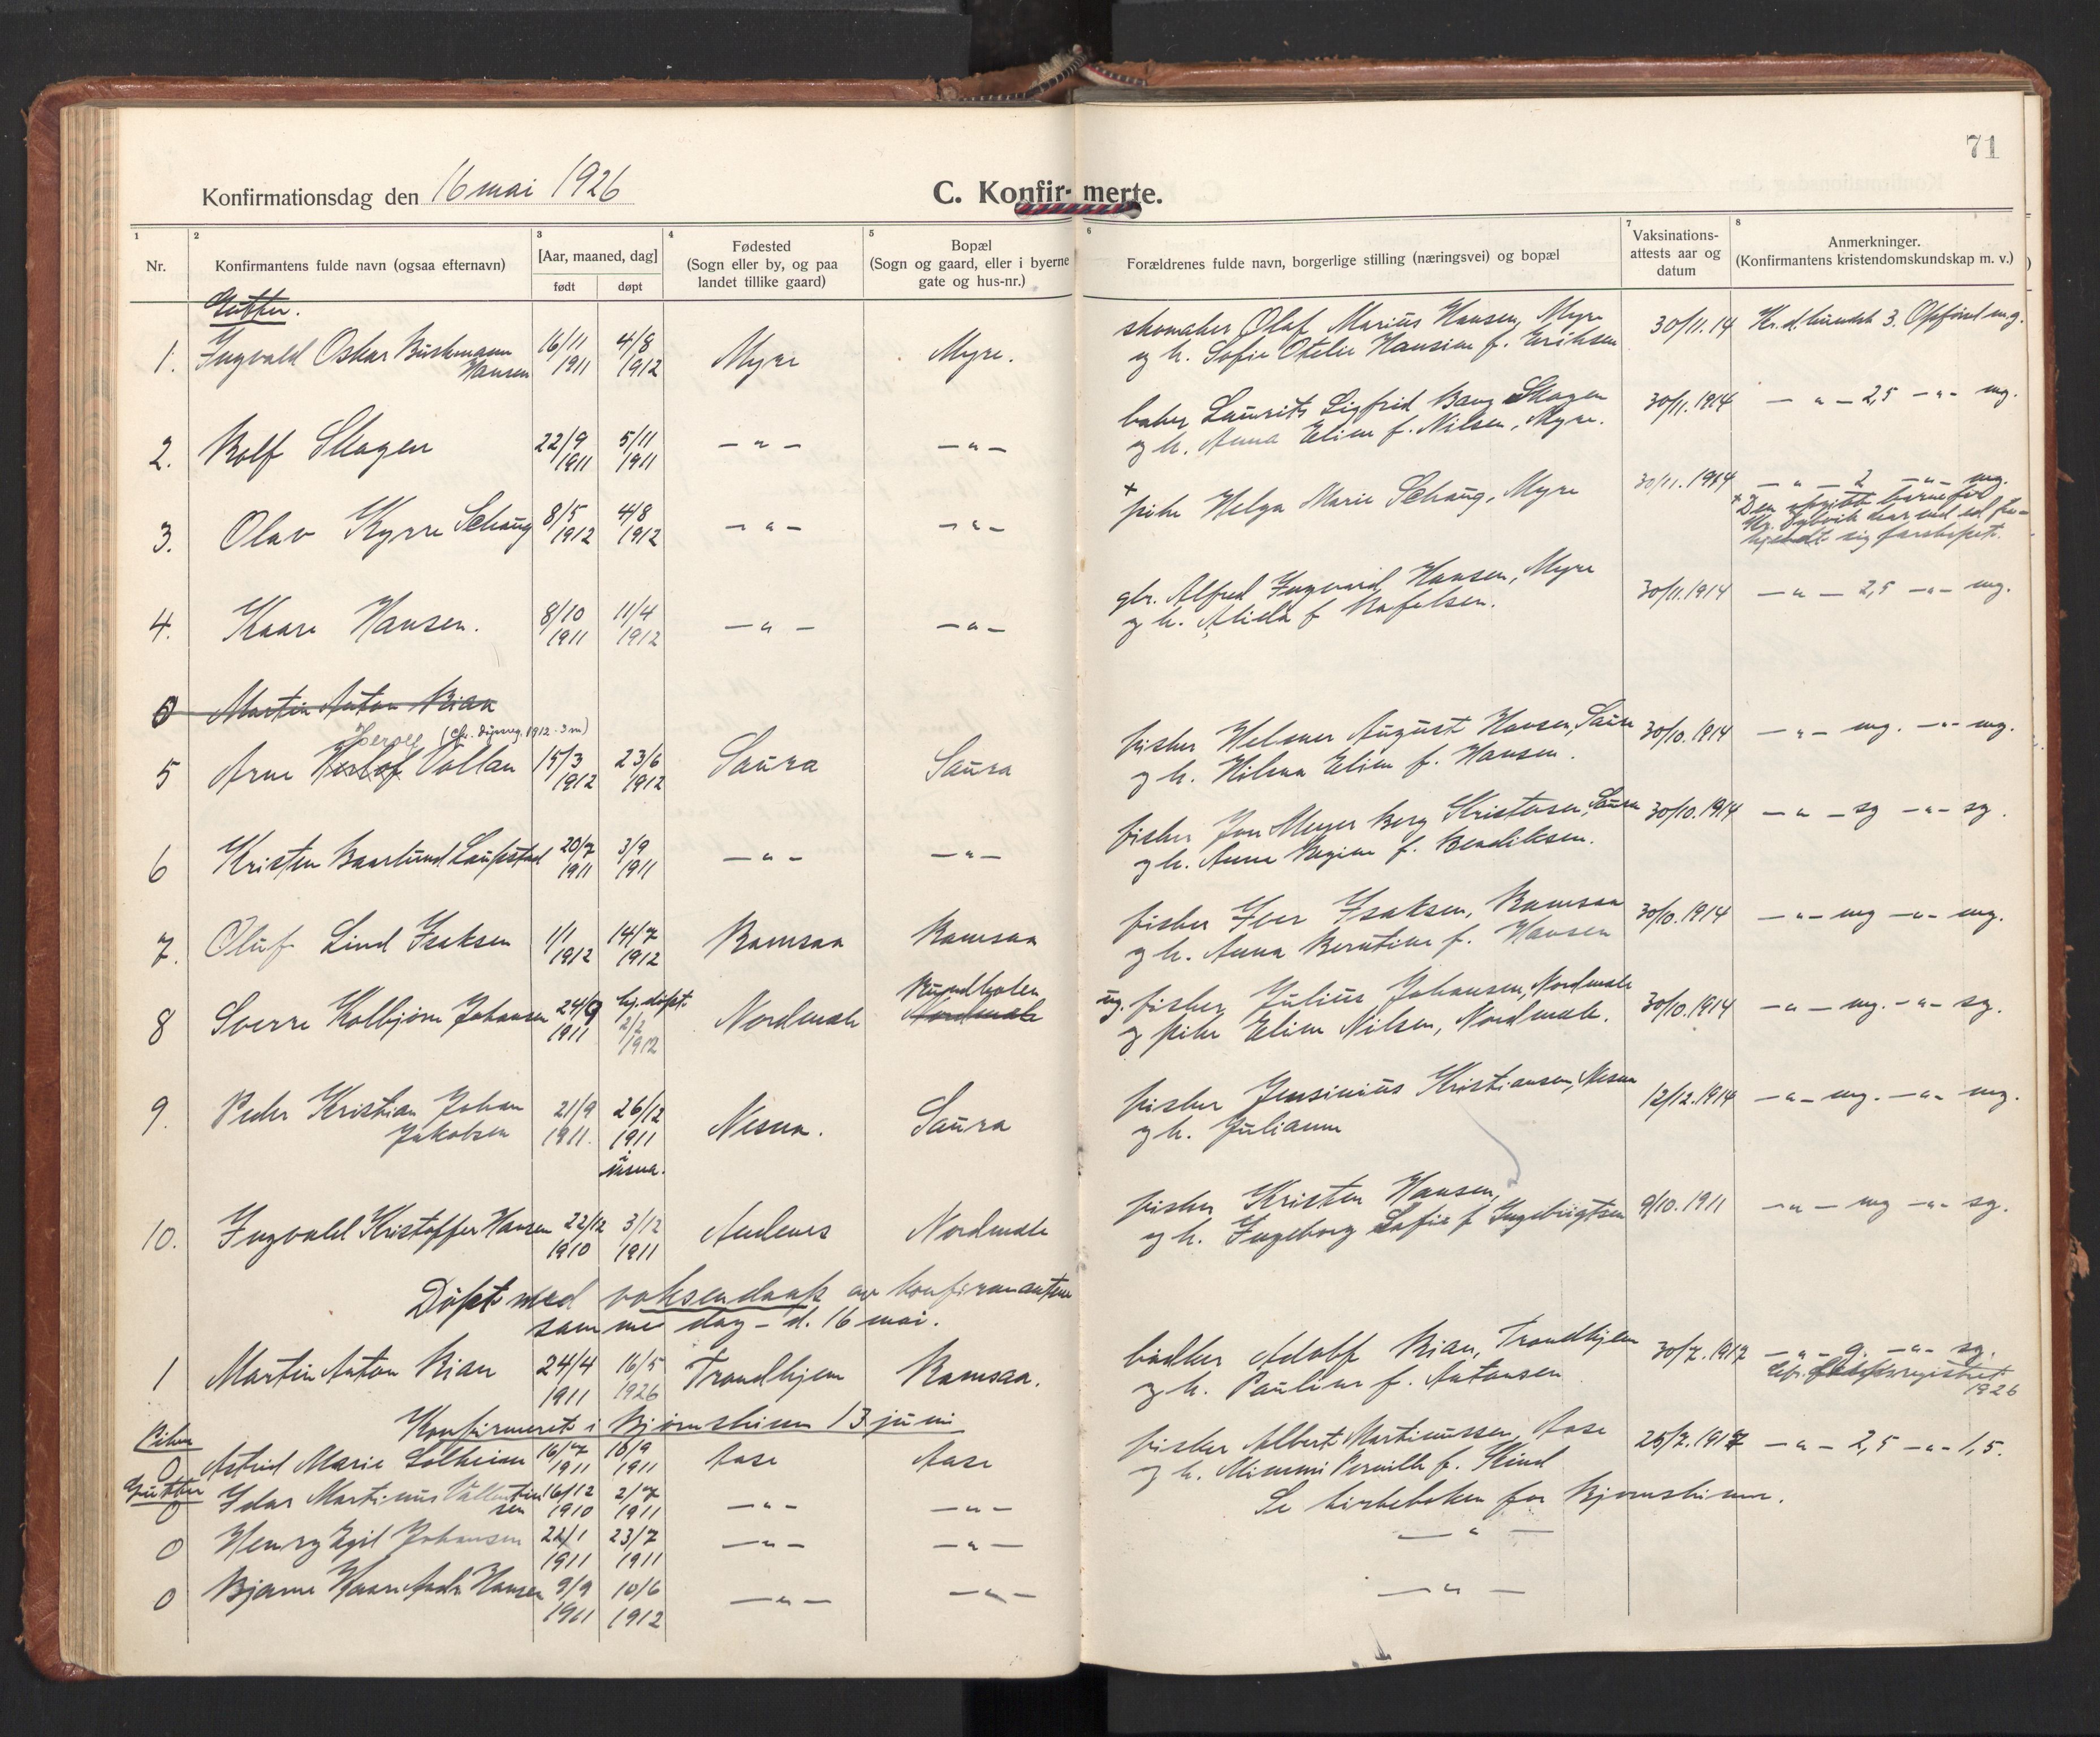 71
Konfirmationsdag den 16 mai 1926
C. Konfir- merte.
1 2 3 4 5 6 7 8
Nr.
Konfirmantens fulde navn (ogsaa efternavn)
[Aar, maaned, dag]
født døpt
Fødested
(Sogn eller by, og paa
landet tillike gaard)
Bopæl
(Sogn og gaard, eller i byerne
gate og hus-nr.)
Forældrenes fulde navn, borgerlige stilling (næringsvei) og bopæl
Vaksinations-
attests aar og
datum
Anmerkninger.
(Konfirmantens kristendomskundskap m. v.)
Gutter.
1. Ingvald Oskar Buschmann Hansen 16/11 1911 4/8 1912 Myre Myre.
skomaker Olaf Marius Hansen, Myre
og h. Sofie Otelie Hansine f. Eriksen
30/11.14 Kr.d.kundsk 3. Opførsel m.g.
2. Rolf Skogen 22/9 1911 5/11 1911 — " — — " —
baker Laurits Sigfrid Bang Skogen
og h. Anna Eline f. Nilsen, Myre.
30/11.1914 — " — 2,5 — " — mg.
3. Olav Kyrre Schaug 8/5 1912 4/8 1912 — " — — " —
× pike Helga Marie Schaug, Myre
30/11.1914 — " — 2 — " — mg.
× Den opgitte barnefar
sig farskapet.
4. Kaare Hansen. 8/10 1911 11/4 1912 — " — — " —
gbr. Alfred Ingvard Hansen, Myre
og h. Alida f. Rafelsen.
30/11.1914 — " — 2,5 — " — mg.
0 Martin Anton Rian
5 Arne Herlof Vollan 15/3 1912 23/6 1912 Saura Saura
fisker Helmer August Hansen, Saura
og h. Hilma Eline f. Hansen.
30/10.1914 — " — mg. — " — mg.
6 Kristen Baarlund Laupstad 20/7 1911 3/9 1911 — " — — " —
fisker Jon Meyer Berg Kristensen, Saura
og h. Anna Regine f. Bendiksen.
30/10.1914 — " — sg — " — sg.
7. Oluf Lind Isaksen 1/1 1912 14/7 1912 Ramsaa Ramsaa
fisker Iver Isaksen, Ramsaa
og h. Anna Berntine f. Hansen
30/10.1914 — " — mg — " — mg.
8 Sverre Kolbjørn Johansen 24/9 1911 hj. døpt. 2/2 1912 Nordmele Nordmele
ug. fisker Julius Johansen, Nordmele
og pike Eline Nilsen, Nordmele.
30/10.1914 — " — mg. — " — sg.
9. Peder Kristian Johan Jakobsen 21/9 1911. 26/12 1911 Nesna. Saura
fisker Jensinius Kristiansen, Nesna
og h. Julianne
12/12.1914 — " — mg. — " — mg.
10. Ingvald Kristoffer Hansen 22/12 1910 3/12 1911 Andenes Nordmele
fisker Kristen Hansen,
og h. Ingeborg Sofie f. Ingebrigtsen
9/10.1911 — " — mg — " — sg.
Døpt med voksendaap av konfirmantene
samme dag – d. 16 mai.
1 Martin Anton Rian 24/4 1911 16/5 1926 Trondhjem Ramsaa.
bødker Adolf Rian, Trondhjem
og h. Pauline f. Antonsen
30/7.1917 — " — g. — " — sg.
Cfr. daapsregistret 1926
Konfirmeret i Bjørnskinn 13 juni
Piker
0 Astrid Marie Solheim 16/7 1911 10/9 1911 Aase Aase
fisker Albert Martinussen, Aase
og h. Mimmi Pernille f. Kind
25/7.1917 — " — 2,5 — " — 1,5.
Gutter
0 Idar Martinus Vallentinsen 16/12 1910 2/7 1911 — " — — " —
Se kirkeboken for Bjørnskinn.
0 Henry Egil Johansen 22/1 1911 23/7 1911 — " — — " —
— " —
0 Bjarne Haare Hansen 9/9 1911 10/6 1912 — " — — " —
— " —